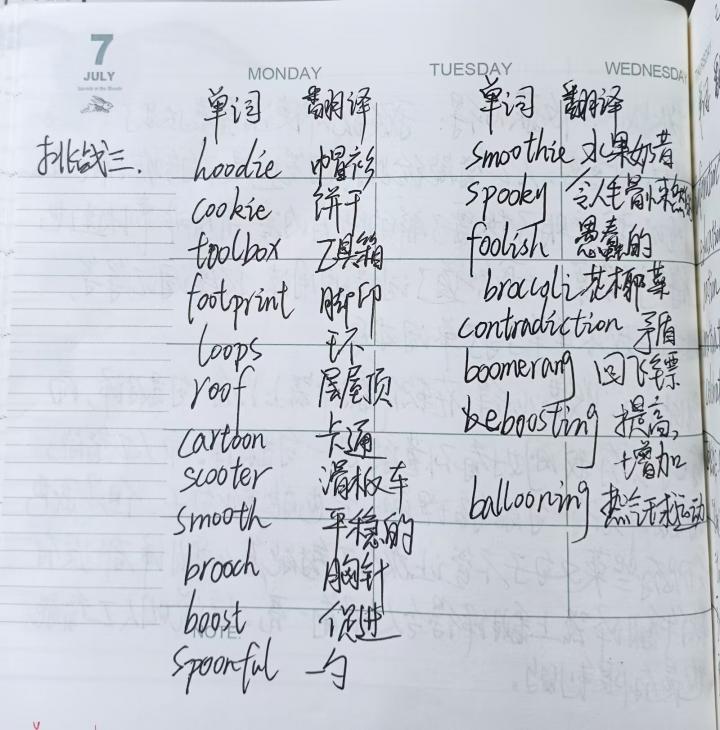 7
JULY
MONDAY
TUESDAY
WEDNESDAY
挑战三.
单词 翻译
hoodie 帽衫
cookie 饼干
toolbox 工具箱
footprint 脚印
loops 环
roof 层屋顶
cartoon 卡通
scooter 滑板车
smooth 平稳的
brooch 胸针
boost 促进
NOTE:
spoonful 一勺
单词 翻译
smoothie 水果奶昔
spooky 令人毛骨悚然
foolish 愚蠢的
broccoli 花椰菜
contradiction 矛盾
boomerang 回飞镖
beboosting 提高,
增加
ballooning 热气球运动